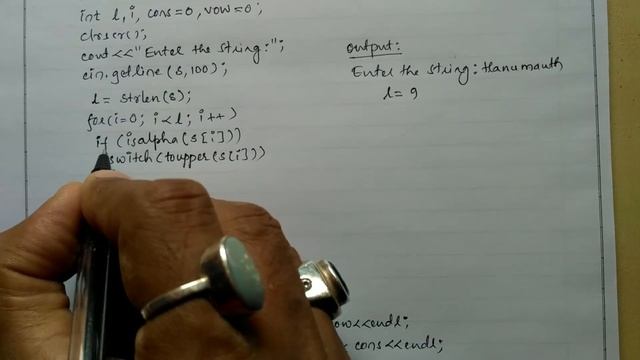 int l, i, cons=0, vow=0;
clrscr();
cout<<"Enter the string:";
cin.getline(s,100);
l = strlen(s);
for(i=0; i<l; i++)
if (isalpha(s[i]))
switch(toupper(s[i]))
output:
Enter the string: Hanumanth
l = 9
ow<<endl;
< cons<<endl;